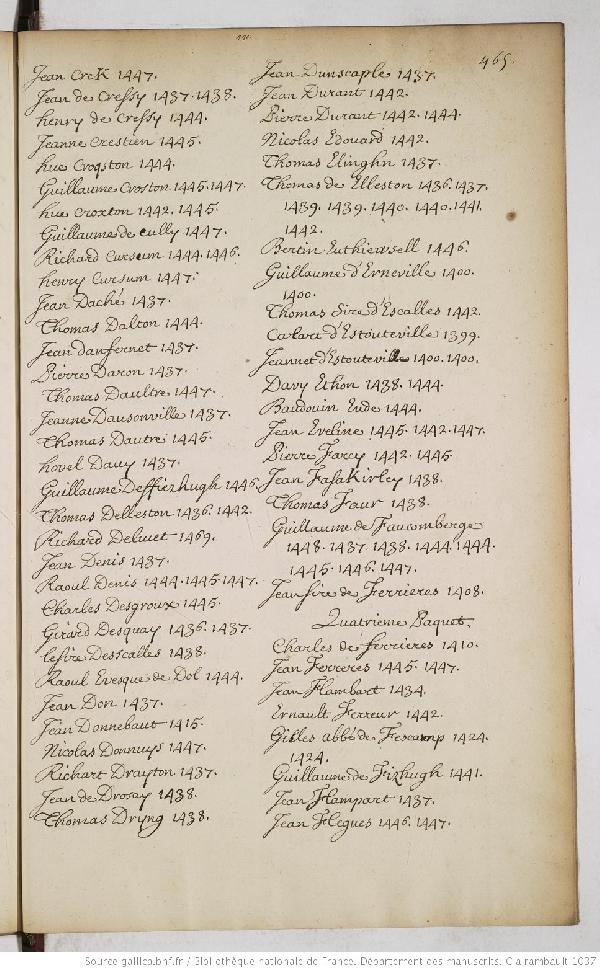 465.
Jean Crek 1447.
Jean de Cressy 1437. 1438.
henry de Cressy 1444.
Jeanne Crestien 1445.
hue Croqston 1444.
Guillaume Croston 1445. 1447.
hue Croxton 1442. 1445.
Guillaume de Cully 1447.
Richard Cursum 1444. 1446.
henry Cursum 1447.
Jean Daché 1437.
Thomas Dalton 1444.
Jean danfernet 1437.
Pierre Daron 1437.
Thomas Daultre 1447.
Jeanne Dausonville 1437.
Thomas Dautre 1445.
hovel Davy 1437.
Guillaume Deffizhugh 1446.
Thomas Delleston 1436. 1442.
Richard Deluet 1469.
Jean Denis 1437.
Raoul Denis 1444. 1445. 1447.
Charles Desgroux 1445.
Girard Desquay 1436. 1437.
le sire Desscalles 1438.
Raoul Evesque de Dol 1444.
Jean Don 1437.
Jean Donnebaut 1415.
Nicolas Donnuys 1447.
Richart Drayton 1437.
Jean de Drosay 1438.
Thomas Dryng 1438.
Jean Dunstaple 1437.
Jean Durant 1442.
Pierre Durant 1442. 1444.
Nicolas Edouard 1442.
Thomas Elinghn 1437.
Thomas de Elleston 1436. 1437.
1439. 1439. 1440. 1440. 1441.
1442.
Bertin Enthiewsell 1446.
Guillaume d'Erneville 1400.
1400.
Thomas Sire d'Escalles 1442.
Catart d'Estouteville 1399.
Jeannet d'Estouteville 1400. 1400.
Davy Ethon 1438. 1444.
Baudouin Eude 1444.
Jean Eveline 1445. 1442. 1447.
Pierre Farcy 1442. 1445.
Jean Fasakirley 1438.
Thomas Faur 1438.
Guillaume de Faucomberge
1448. 1437. 1438. 1444. 1444.
1445. 1446. 1447.
Jean sire de Ferrieres 1408.
Quatrieme Paquet.
Charles de ferrieres 1410.
Jean Ferreres 1445. 1447.
Jean Flambart 1434.
Ernault Ferreur 1442.
Gilles abbé de Fescamp 1424.
1424.
Guillaume de Fizhugh 1441.
Jean Flampart 1437.
Jean Flegues 1446. 1447.
Source gallica.bnf.fr / Bibliothèque nationale de France. Département des manuscrits. Clairambault 1037